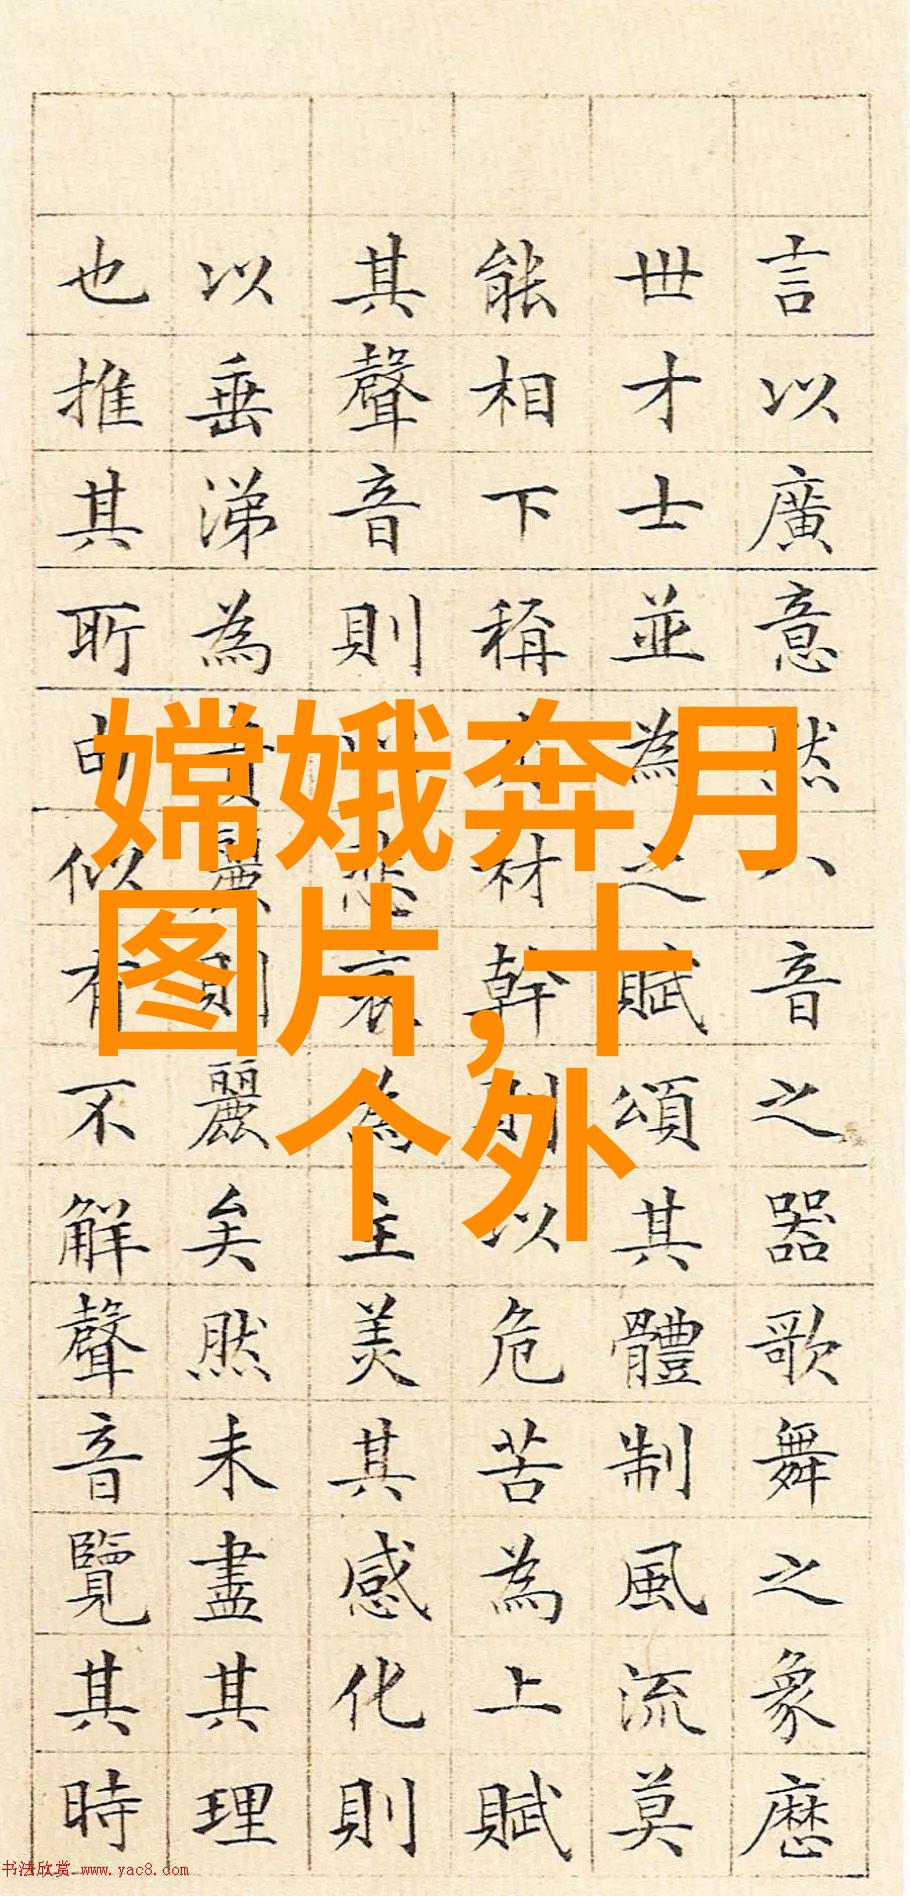 言以廣意然八音之器歌舞之象歷
世才士並為之賦頌其體制風流莫
能相下稱材幹則以危苦為上賦
其聲音則悲哀為主美其感化則
以垂涕為貴麗則麗矣然未盡其理
也推其所由似有不解聲音覽其時
嫦娥奔月
图片,十
个外
书法欣赏 www.yac8.com